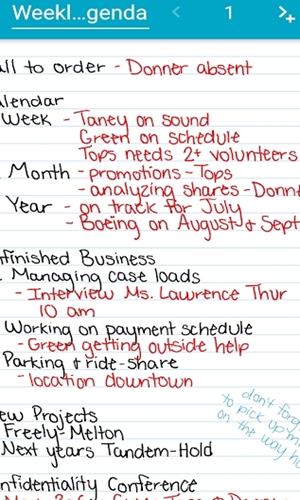 Weekl...genda
1
all to order - Donner absent
alendar
Week - Taney on sound
Green on schedule
Tops needs 2+ volunteers
Month - promotions - Tops
- analyzing shares - Donn
Year - on track for July
- Boeing on August & Sept
finished Business
Managing case loads
- Interview Ms. Lawrence Thur
10 am
Working on payment schedule
- Green getting outside help
Parking & ride-share
- location downtown
don't forg
to pick up m
on the way h
ew Projects
Freely-Melton
Next years Tandem-Hold
nfidentiality Conference